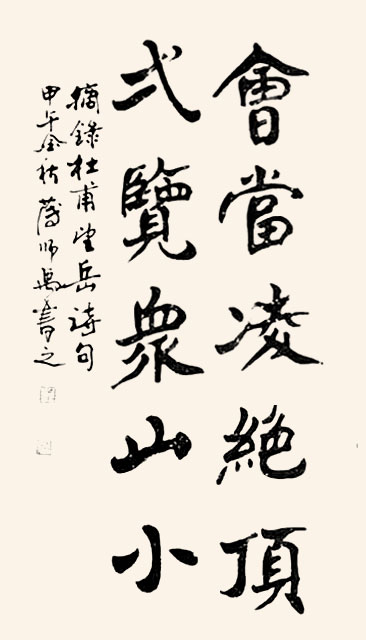 會當凌絕頂
弌覽眾山小
摘錄杜甫望岳詩句
甲午金秋 师禹書之